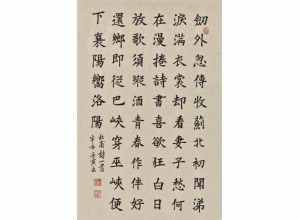 劍外忽傳收薊北初聞涕
淚滿衣裳却看妻子愁何
在漫捲詩書喜欲狂白日
放歌須縱酒青春作伴好
還鄉即從巴峽穿巫峽便
下襄陽嚮洛陽
杜甫詩一首